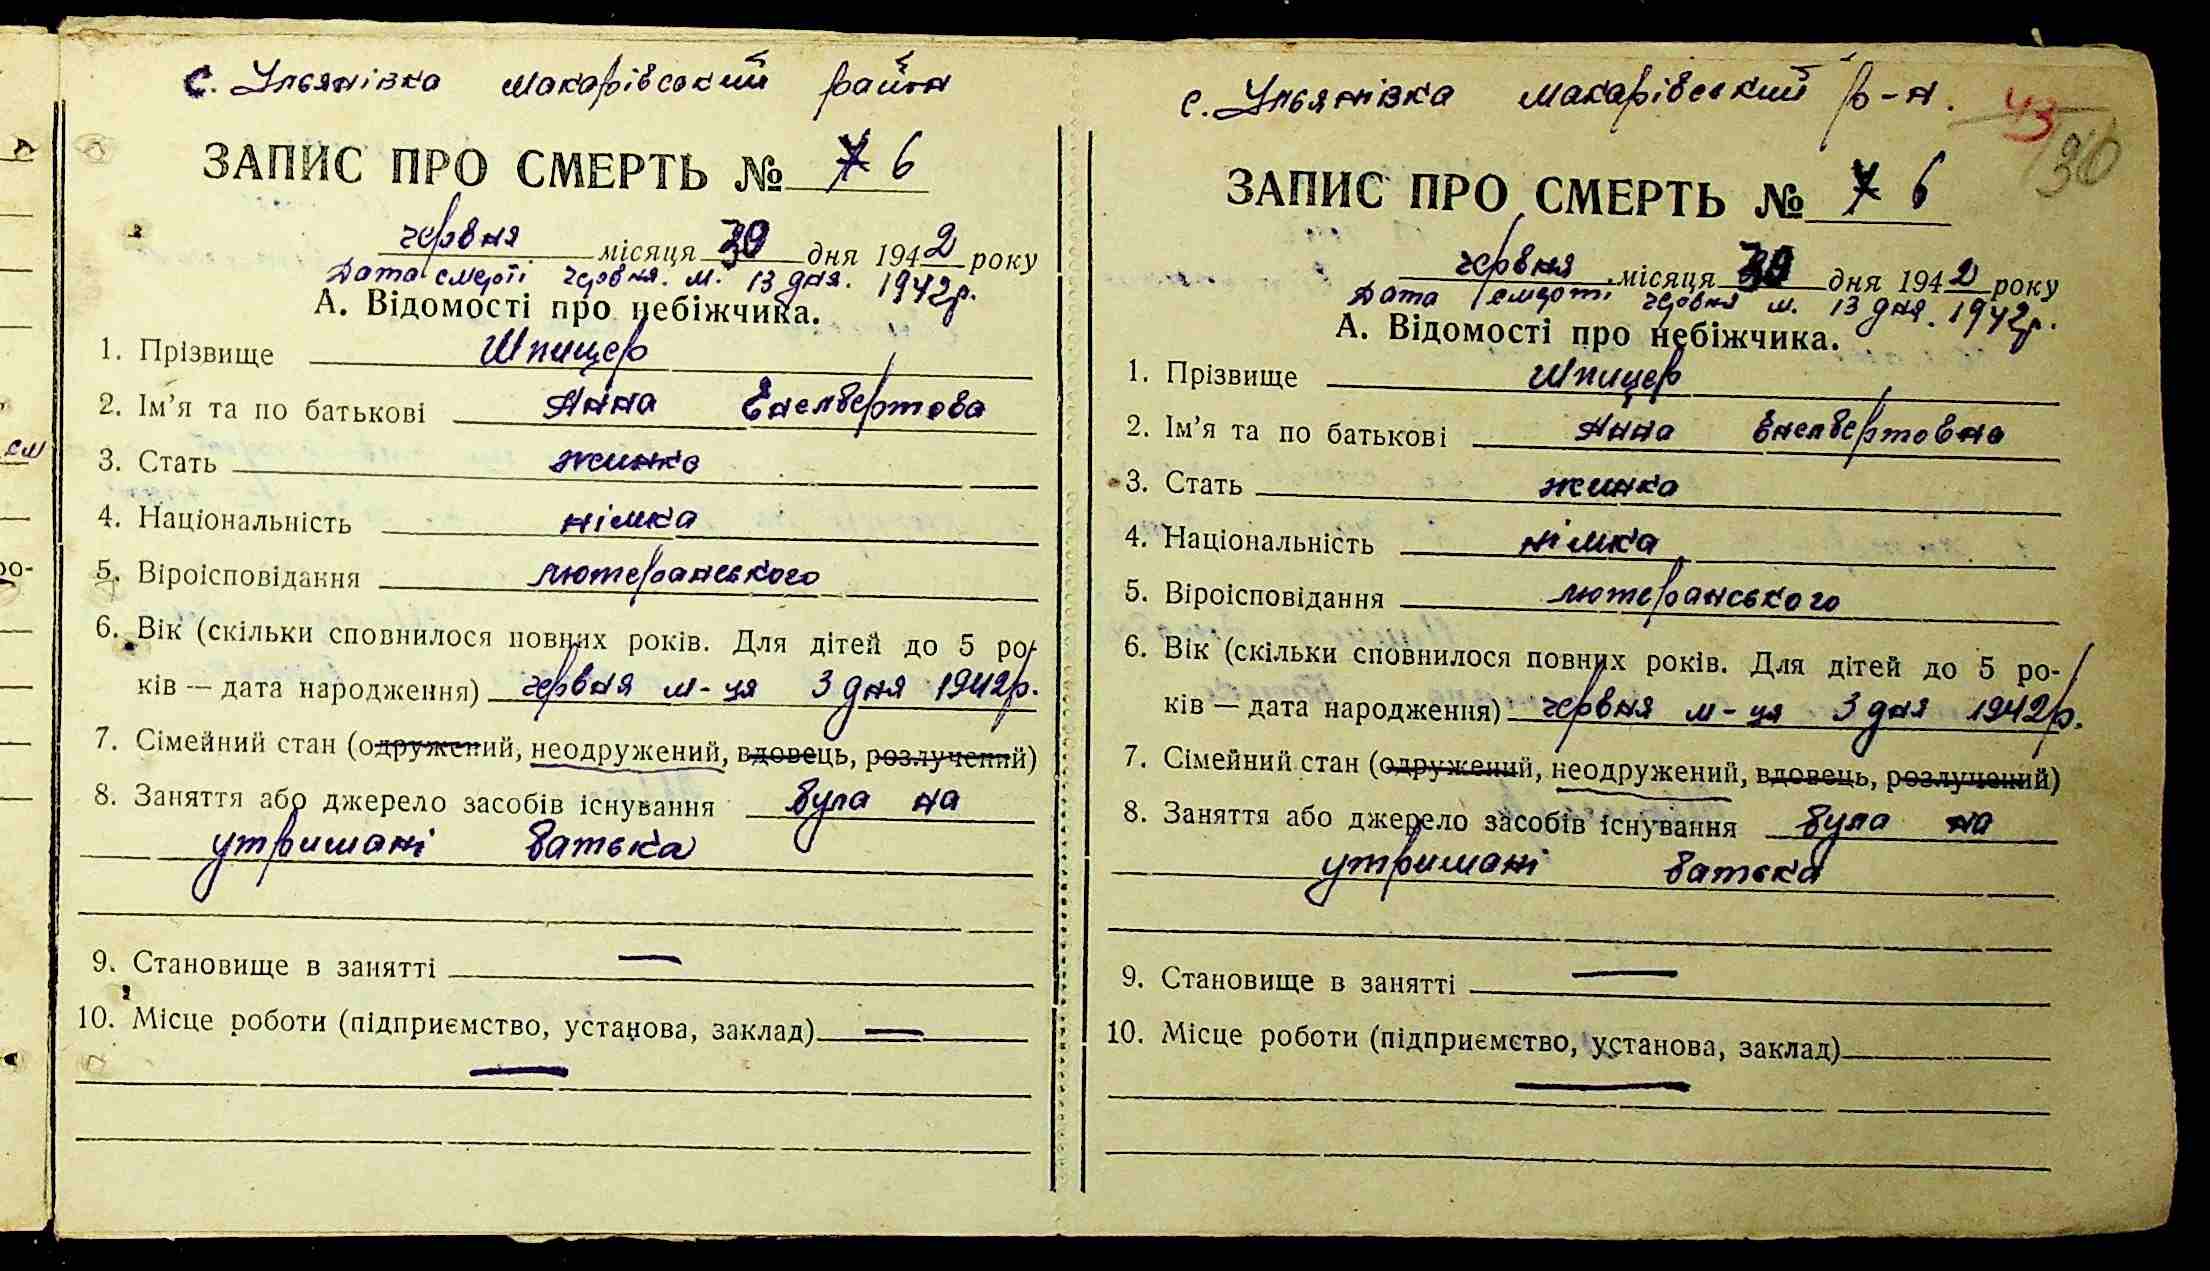 с. Ульянівка Макарівський район
ЗАПИС ПРО СМЕРТЬ № 7 6
червня місяця 30 дня 1942 року
Дата смерті червня. м. 13 дня. 1942р.
А. Відомості про небіжчика.
1. Прізвище Шпицер
2. Ім'я та по батькові Анна Енгельбертова
3. Стать жинка
4. Національність німка
5. Віроісповідання лютеранського
6. Вік (скільки сповнилося повних років. Для дітей до 5 ро-
ків — дата народження) червня м-ця 3 дня 1942р.
7. Сімейний стан (одружений, неодружений, вдовець, розлучений)
8. Заняття або джерело засобів існування була на
утримані батька
9. Становище в занятті —
10. Місце роботи (підприємство, установа, заклад) —
—
с. Ульянівка Макарівський р-н.
43
36
ЗАПИС ПРО СМЕРТЬ № 7 6
червня місяця 30 дня 1942 року
Дата смерті червня м. 13 дня. 1942р.
А. Відомості про небіжчика.
1. Прізвище Шпицер
2. Ім'я та по батькові Анна Енельбертовна
3. Стать жинка
4. Національність німка
5. Віроісповідання лютеранського
6. Вік (скільки сповнилося повних років. Для дітей до 5 ро-
ків — дата народження) червня м-ця 3 дня 1942р.
7. Сімейний стан (одружений, неодружений, вдовець, розлучений)
8. Заняття або джерело засобів існування була на
утримані батька
9. Становище в занятті —
10. Місце роботи (підприємство, установа, заклад)
—